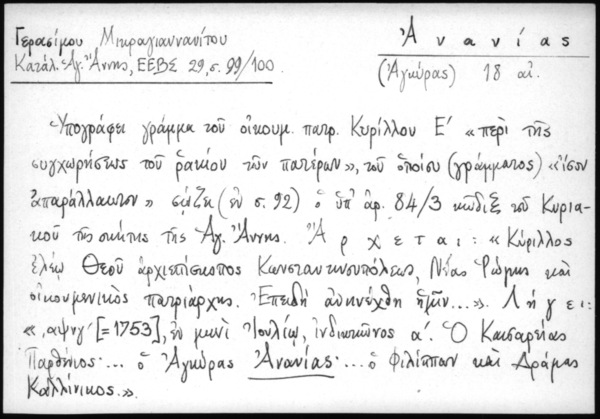 Γερασίμου Μικραγιαννανίτου
Κατάλ. Ἁγ. Ἄννης, ΕΕΒΣ 29, σ. 99/100.
Ἀνανίας
(Ἀγκύρας) 18 αἰ.
Ὑπογράφει γράμμα τοῦ οἰκουμ. πατρ. Κυρίλλου Ε΄ «περὶ τῆς
συγχωρήσεως τοῦ ῥακίου τῶν πατέρων», τοῦ ὁποίου (γράμματος) «ἴσον
ἀπαράλλακτον» σῴζει (ἐν σ. 92) ὁ ὑπ' ἀρ. 84/3 κῶδιξ τοῦ Κυρια-
κοῦ τῆς σκήτης τῆς Ἁγ. Ἄννης. Ἄρχεται: «Κύριλλος
ἐλέῳ Θεοῦ ἀρχιεπίσκοπος Κωνσταντινουπόλεως, Νέας Ῥώμης καὶ
οἰκουμενικὸς πατριάρχης. Ἐπειδὴ ἀνηνέχθη ἡμῖν...». Λήγει:
«͵αψνγ΄ [=1753], ἐν μηνὶ Ἰουλίῳ, ἰνδικτιῶνος α΄. Ὁ Καισαρείας
Παρθένιος·... ὁ Ἀγκύρας Ἀνανίας·... ὁ Φιλίππων καὶ Δράμας
Καλλίνικος.».